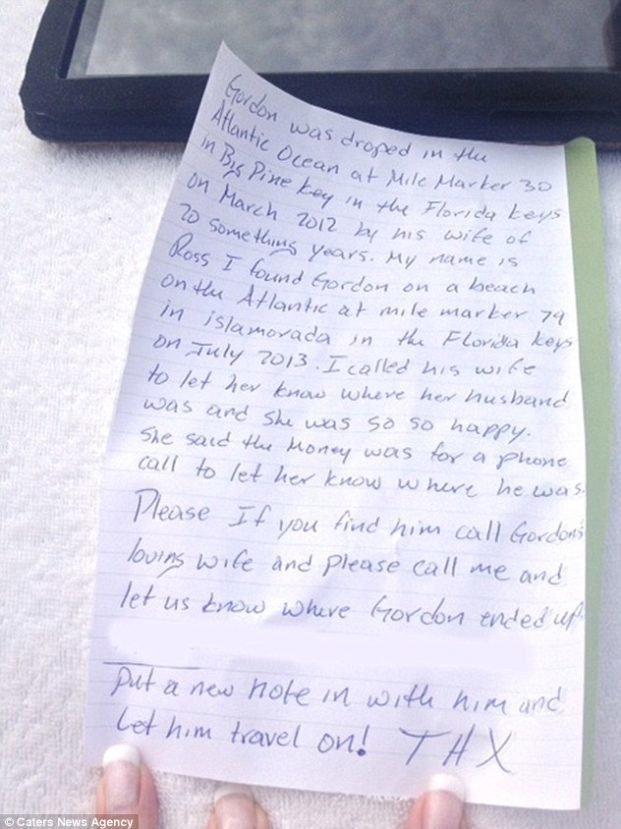 Gordon was droped in the
Atlantic Ocean at Mile Marker 30
in Big Pine Key in the Florida keys
on March 2012 by his wife of
20 something years. My name is
Ross I found Gordon on a beach
on the Atlantic at mile marker 79
in islamorada in the Florida keys
on July 2013. I called his wife
to let her know where her husband
was and she was so so happy.
She said the money was for a phone
call to let her know where he was.
Please If you find him call Gordon's
loving wife and please call me and
let us know where Gordon ended up
Put a new note in with him and
Let him travel on! THX
© Caters News Agency